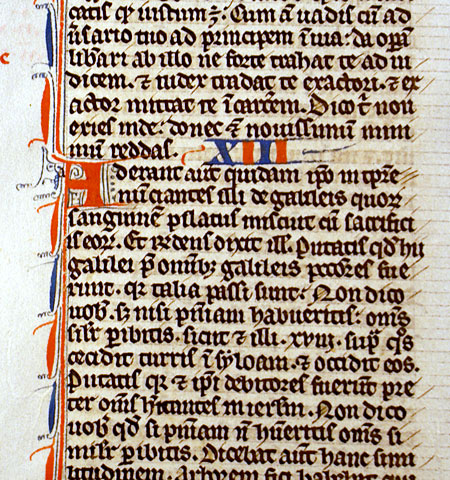 catis qd̛ iustum ē̛. Cum aͭ uadis cū ad
ūsario tuo ad principem ī uia: da opāꝫ
libari ab illo ne forte trahat te ad iu
dicem. ⁊ iudex tradat te exactori. ⁊ ex
actor mittat te ī carcēm. Dico t̄ non
exies inde: donec ⁊ nouissimum minu
tum reddas. XIII
Aderant aut̄ quidam ip̄o in tp̄re
nūciantes illi de galileis quoꝝ
sanguinē pylatus miscuit cū sacrifici
is eoꝝ. Et r̄ndens dixit ill̄. Putatis qd̛ hii
galilei p̄ omībꝫ galileis pccōres fue
runt. qꝛ talia passi sunt. Non dico
uob̄. sꝫ nisi pn̄iam habueritis: om̄s
sil̄r ꝑibitis. sicut ⁊ illi .xviii. sup̄ qͦs
cecidit turris ī syloam. ⁊ occidit eos.
Putatis qꝛ ⁊ ip̄i debitores fuerint pre
ter om̄s h̄itantes in ierl̄m. Non dico
uob̄ qd̛ si pn̄iam n̄ h̄ueritis om̄s si
militer ꝑibitis. Dicebat aut̄ hanc simi
litudinem. Arborem fici habebat qui